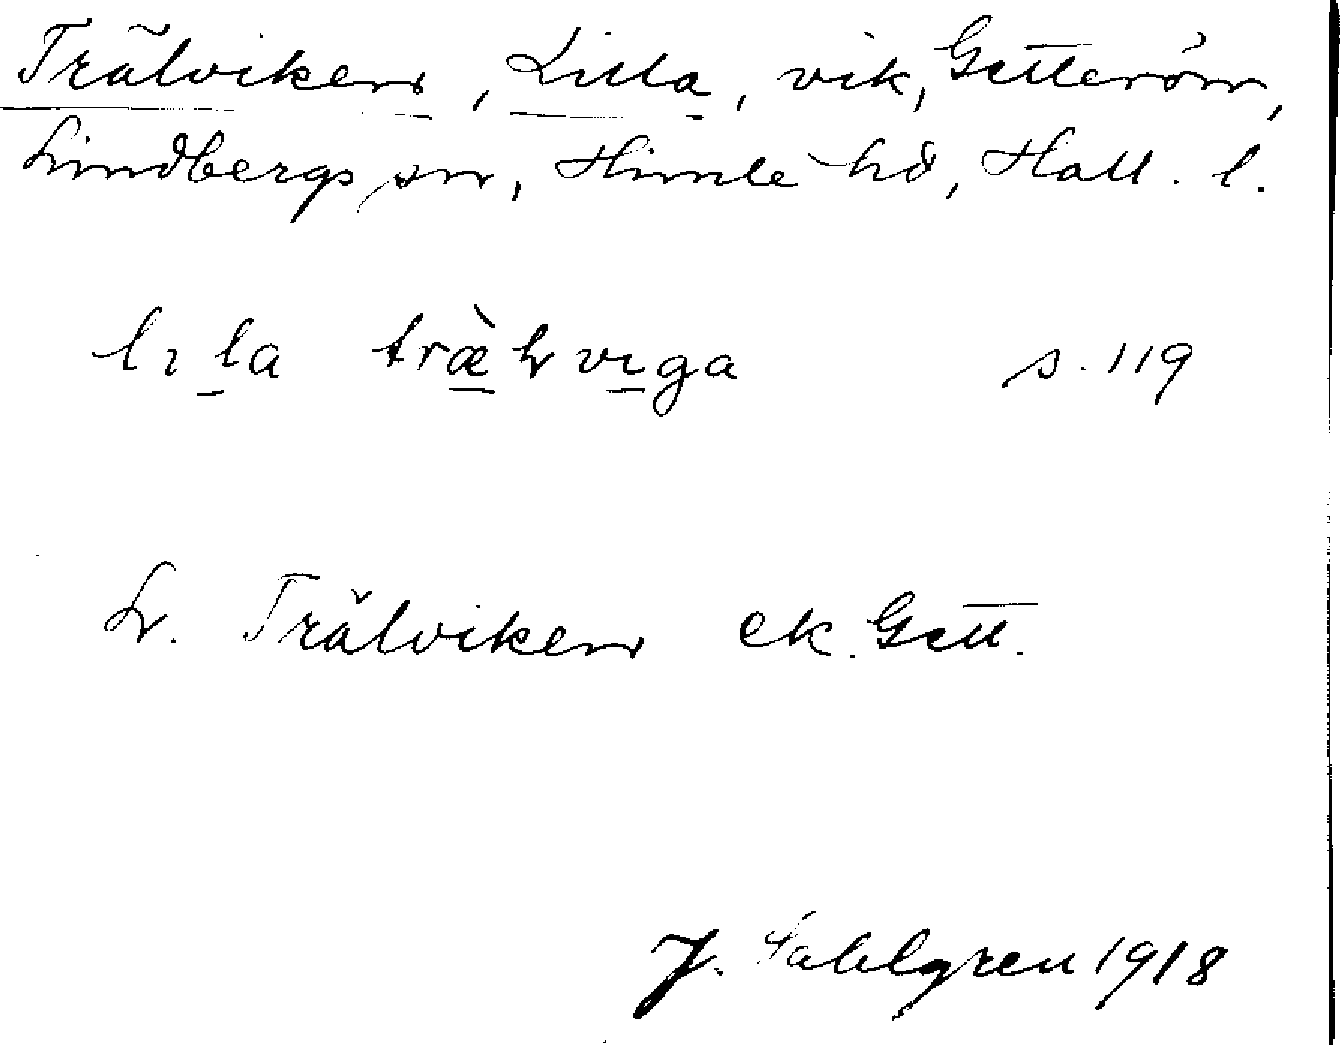 Trälviken, Lilla, vik, Getterön,
Lindbergs sn, Himle hd, Hall. l.
s. 119
L. Trälviken ek. Gett.
J. Sahlgren 1918